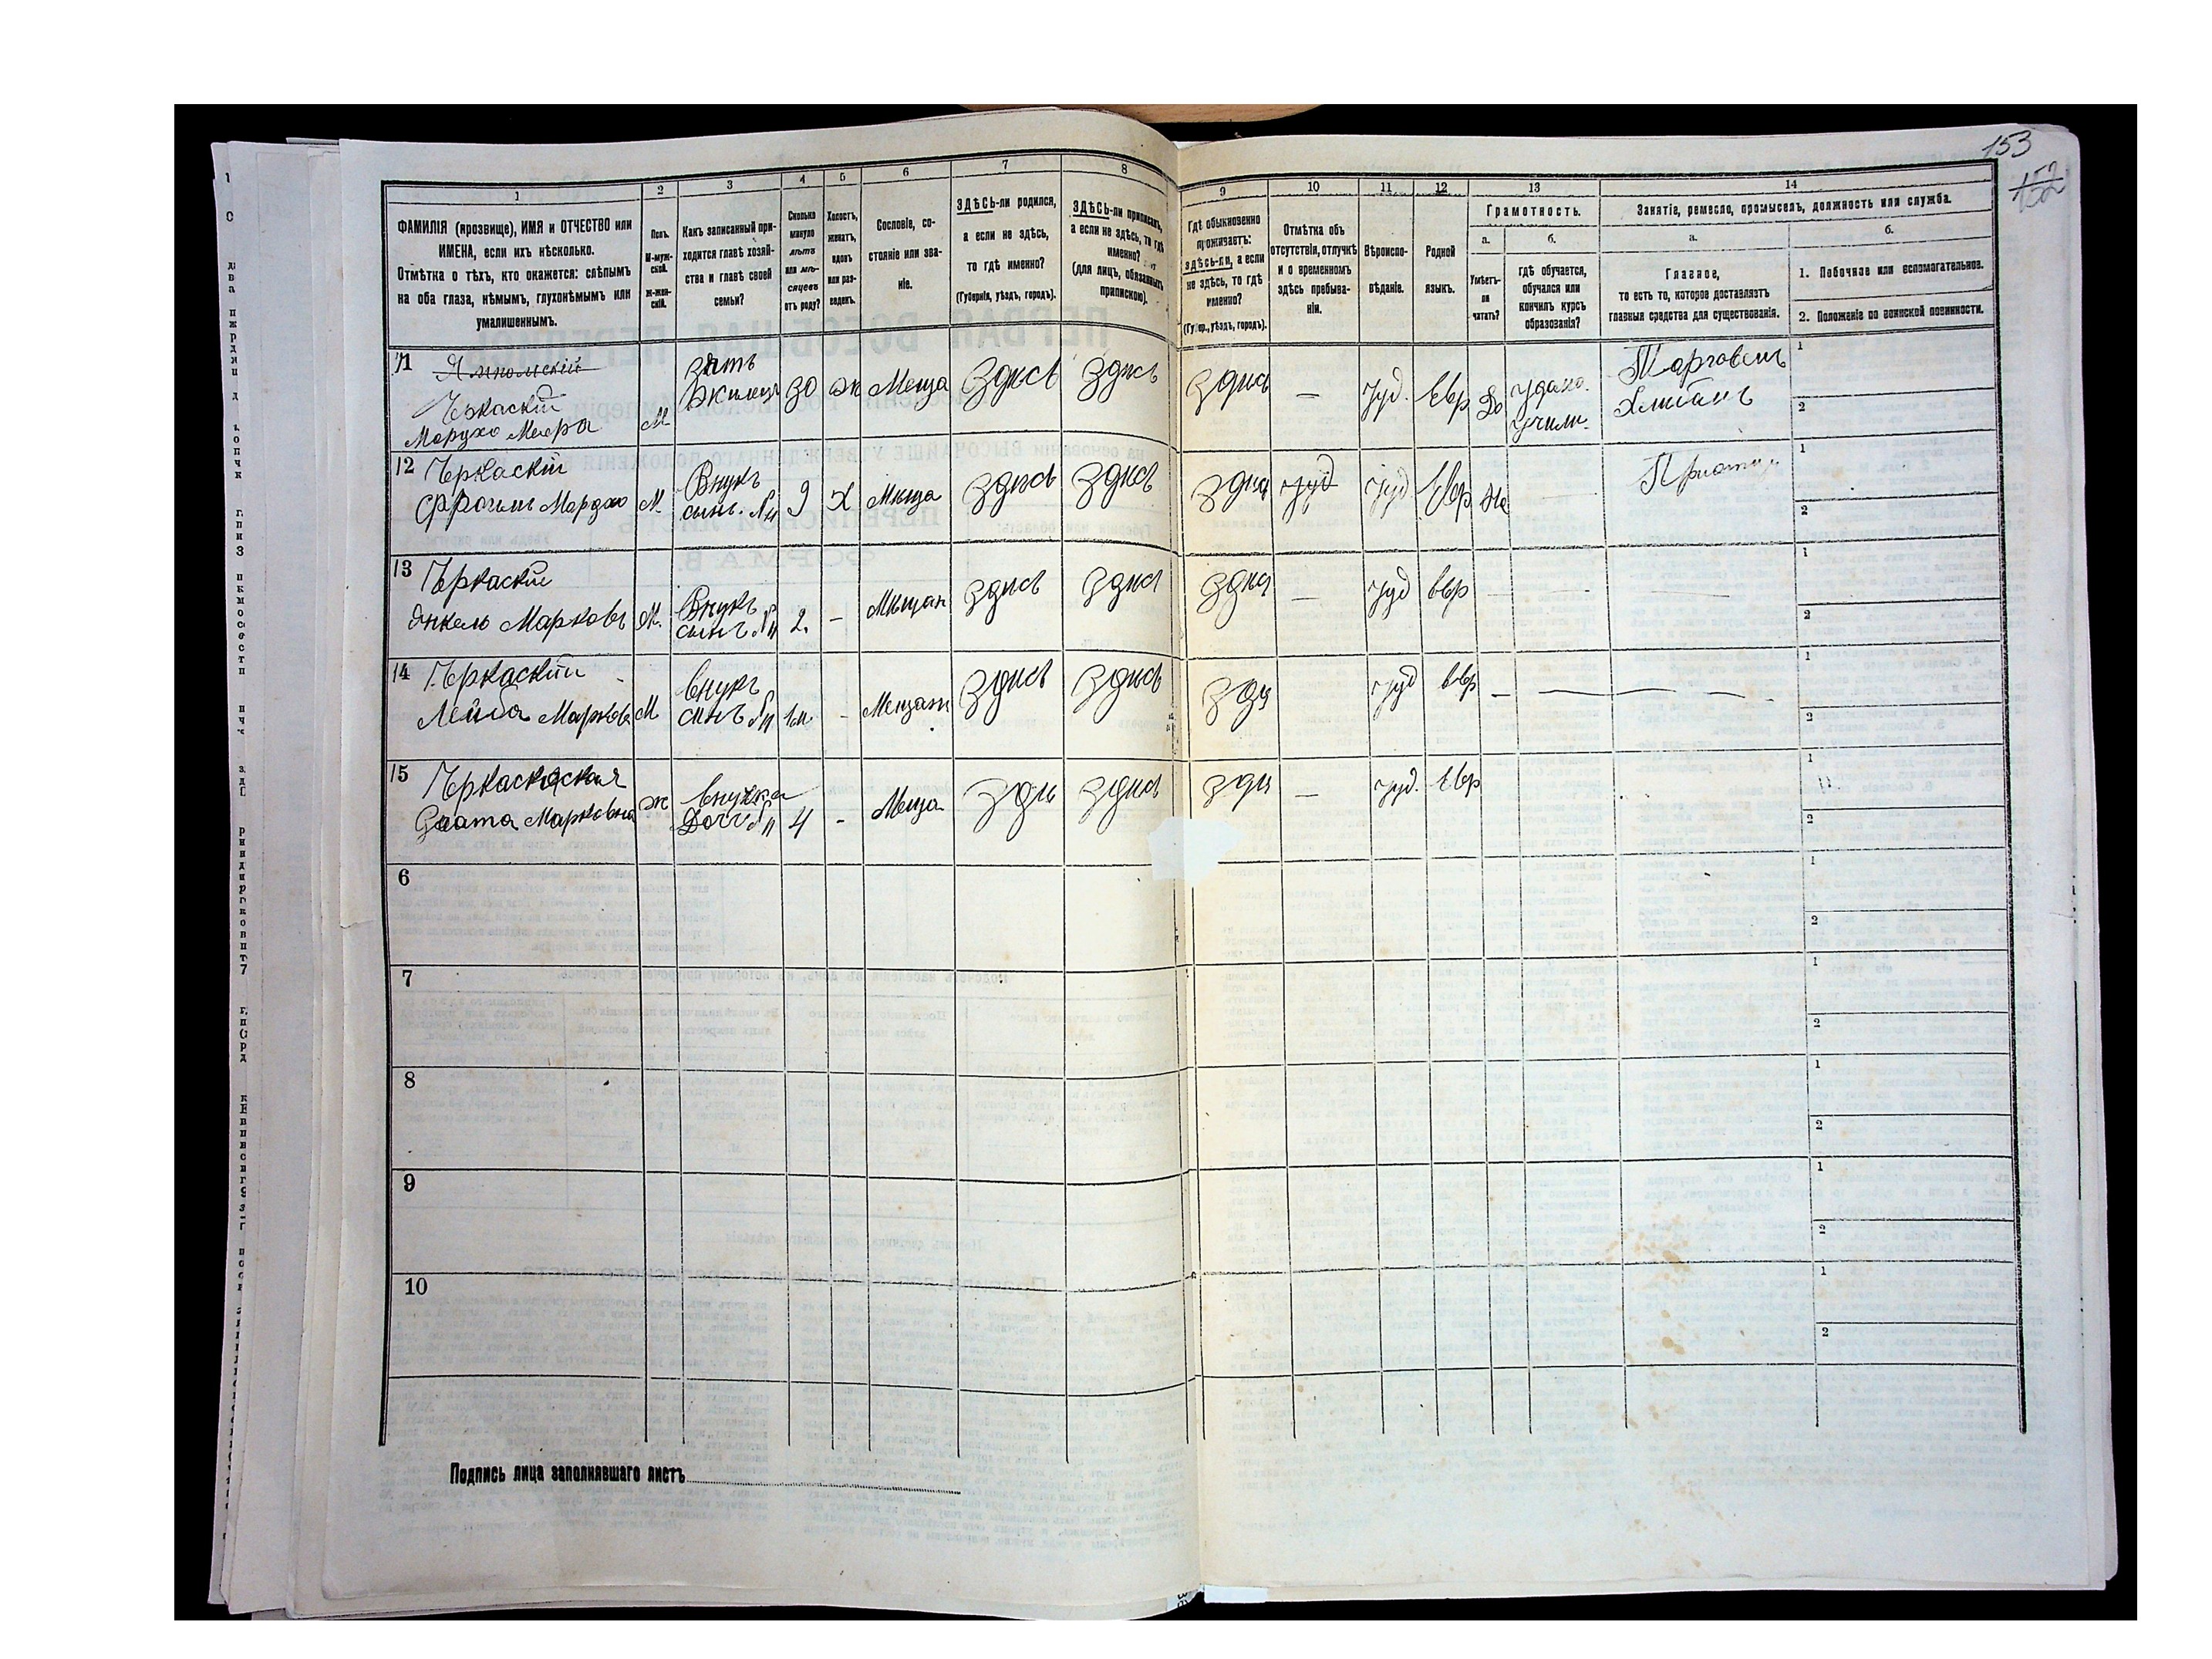 153
152
1
ФАМИЛІЯ (прозвище), ИМЯ и ОТЧЕСТВО или
ИМЕНА, если ихъ нѣсколько.
Отмѣтка о тѣхъ, кто окажется: слѣпымъ
на оба глаза, нѣмымъ, глухонѣмымъ или
умалишеннымъ.
2
Полъ.
М-муж-
ской.
Ж-жен-
скій.
3
Какъ записанный при-
ходится главѣ хозяй-
ства и главѣ своей
семьи?
4
Сколько
минуло
лѣтъ
или мѣ-
сяцевъ
отъ роду?
5
Холостъ,
женатъ,
вдовъ
или раз-
веденъ.
6
Сословіе, со-
стояніе или зва-
ніе.
7
ЗДѢСЬ-ли родился,
а если не здѣсь,
то гдѣ именно?
(Губернія, уѣздъ, городъ).
8
ЗДѢСЬ-ли приписанъ,
а если не здѣсь, то гдѣ
именно?
(для лицъ, обязанныхъ
припискою).
9
Гдѣ обыкновенно
проживаетъ:
здѣсь-ли, а если
не здѣсь, то гдѣ
именно?
(Губер., уѣздъ, городъ).
10
Отмѣтка объ
отсутствіи, отлучкѣ
и о временномъ
здѣсь пребыва-
ніи.
11
Вѣроиспо-
вѣданіе.
12
Родной
языкъ.
13
Грамотность.
а.
Умѣетъ-
ли
читать?
б.
гдѣ обучается,
обучался или
кончилъ курсъ
образованія?
14
Занятіе, ремесло, промыселъ, должность или служба.
а.
Главное,
то есть то, которое доставляетъ
главныя средства для существованія.
б.
1. Побочное или вспомогательное.
2. Положеніе по воинской повинности.
11
Черкаскій
М
зять
Жилецъ
30
ж
Меща
Здись
Здись
Здись
—
Іуд.
Евр
Да
Торговецъ
1
2
12 Черкаскій
М
Внукъ
сынъ №11
9
Х
Мѣща
Здись
Здись
Іуд
Іуд
Евр
Не
1
2
13 Черкаскій
Янкель Марковъ
М.
Внукъ
сынъ №11
2.
-
Мѣщан
Здись
Здись
—
Іуд
Евр
1
2
14 Черкаскій
Лейба Марковъ
М
Внукъ
сынъ №11
1м
-
Мещан
Здись
Здись
Іуд
Евр
1
2
15
Марковна
ж
Внучка
Дочь №11
4
-
Меща
Здись
—
Іуд.
Евр
1
2
6
1
2
7
1
2
8
1
2
9
1
2
10
1
2
Подпись лица заполнявшаго листъ